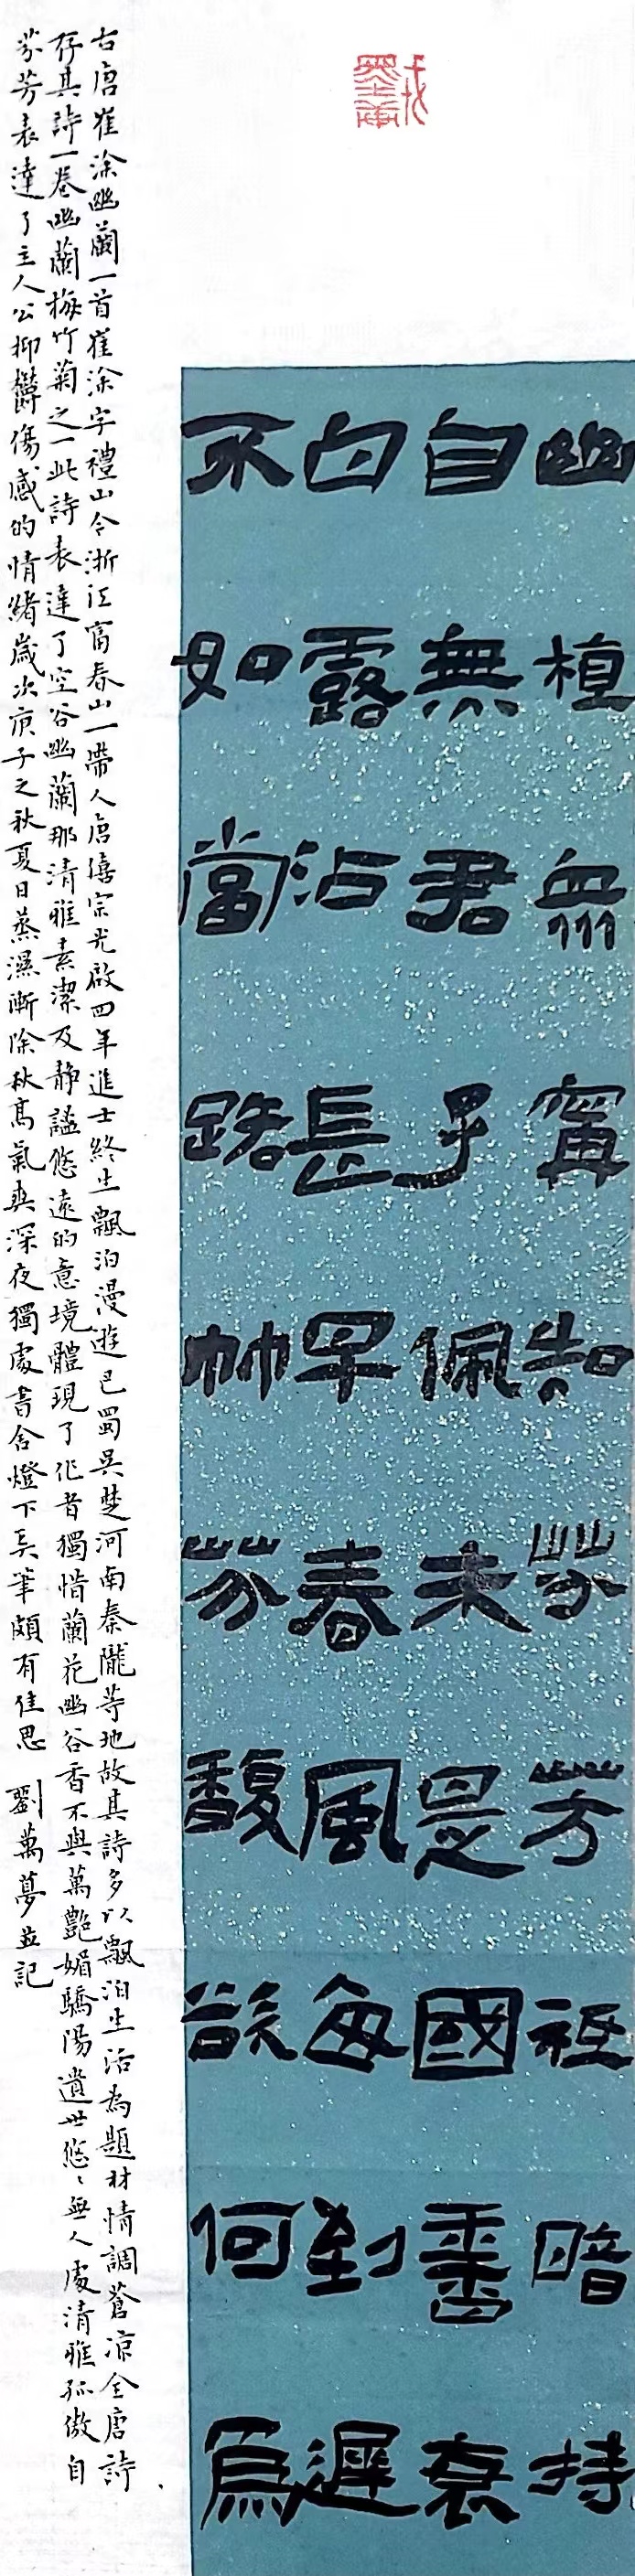 幽植眾寧知芬芳祗暗持
自無君子佩未是國香衰
白露沾長早春風每到遲
不如當路艸芬馥欲何為
右唐崔涂幽蘭一首崔涂字禮山今浙江富春山一帶人唐僖宗光啟四年進士終生飄泊漫遊巴蜀吳楚河南秦隴等地故其詩多以飄泊生活為題材情調蒼涼全唐詩
存其詩一卷幽蘭梅竹菊之一此詩表達了空谷幽蘭那清雅素潔及靜謐悠遠的意境體現了作者獨惜蘭花幽谷香不與萬艷媚驕陽遺世悠〻無人處清雅孤傲自
芬芳表達了主人公抑鬱傷感的情緒歲次庚子之秋夏日蒸濕漸除秋高氣爽深夜獨處書舍燈下弄筆頗有佳思 劉萬夢並記